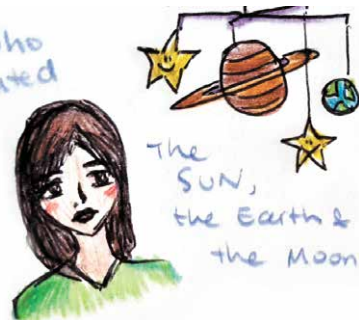 ho
ated
The
SUN,
the Earth &
the Moon